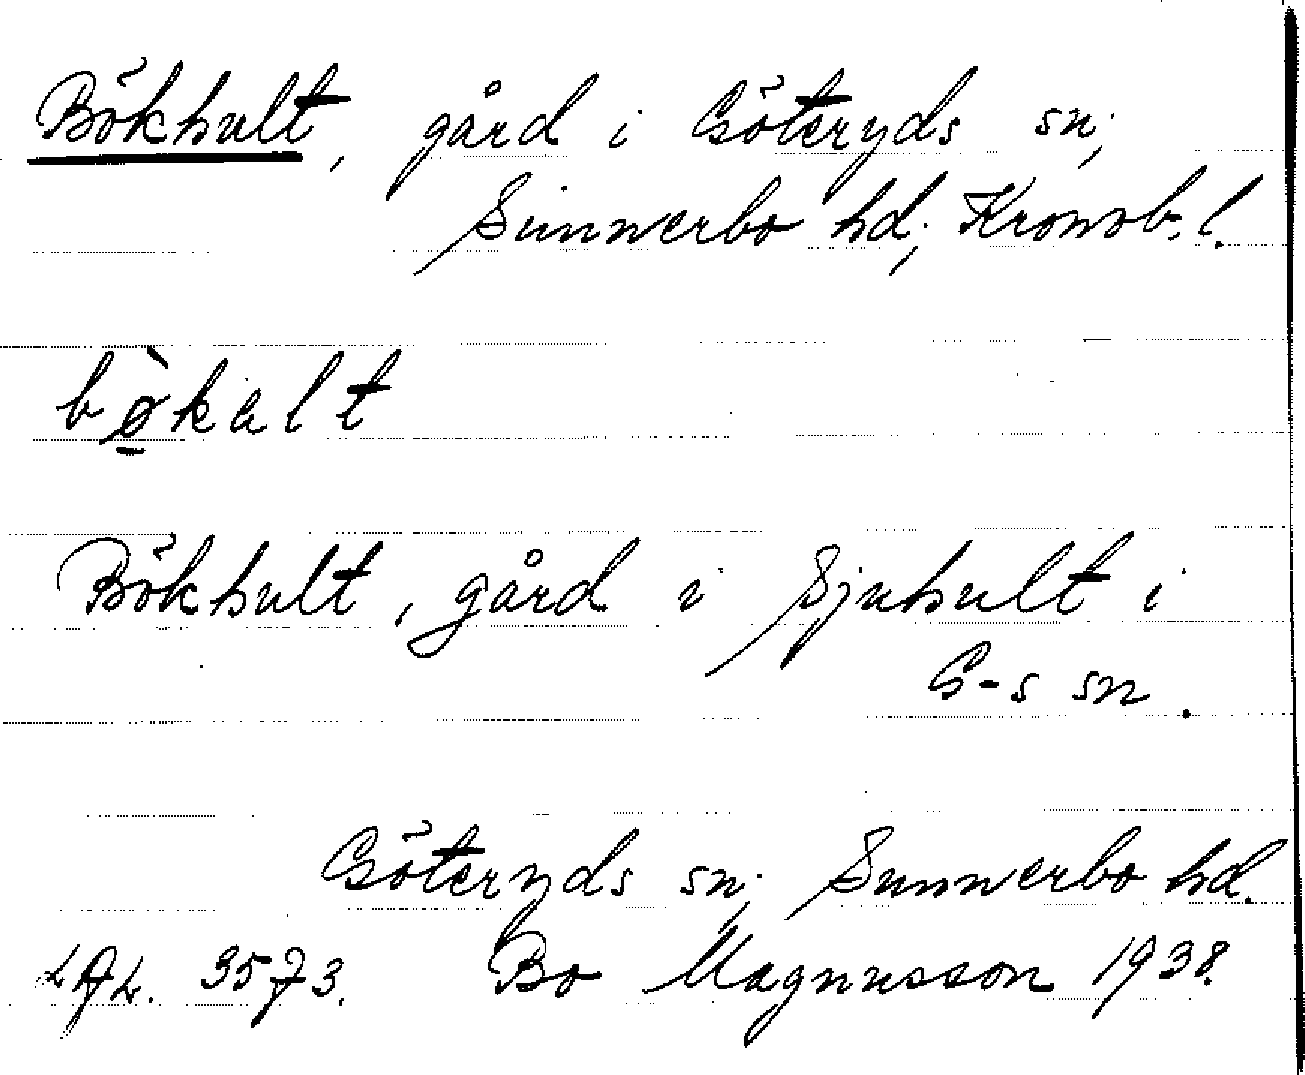 Bökhult, gård i Göteryds sn;
Sunnerbo hd; Kronob. l.
bø̀kalt
Bökhult, gård i Sjuhult i
G-s sn.
Göteryds sn; Sunnerbo hd.
3573. Bo Magnusson 1938.